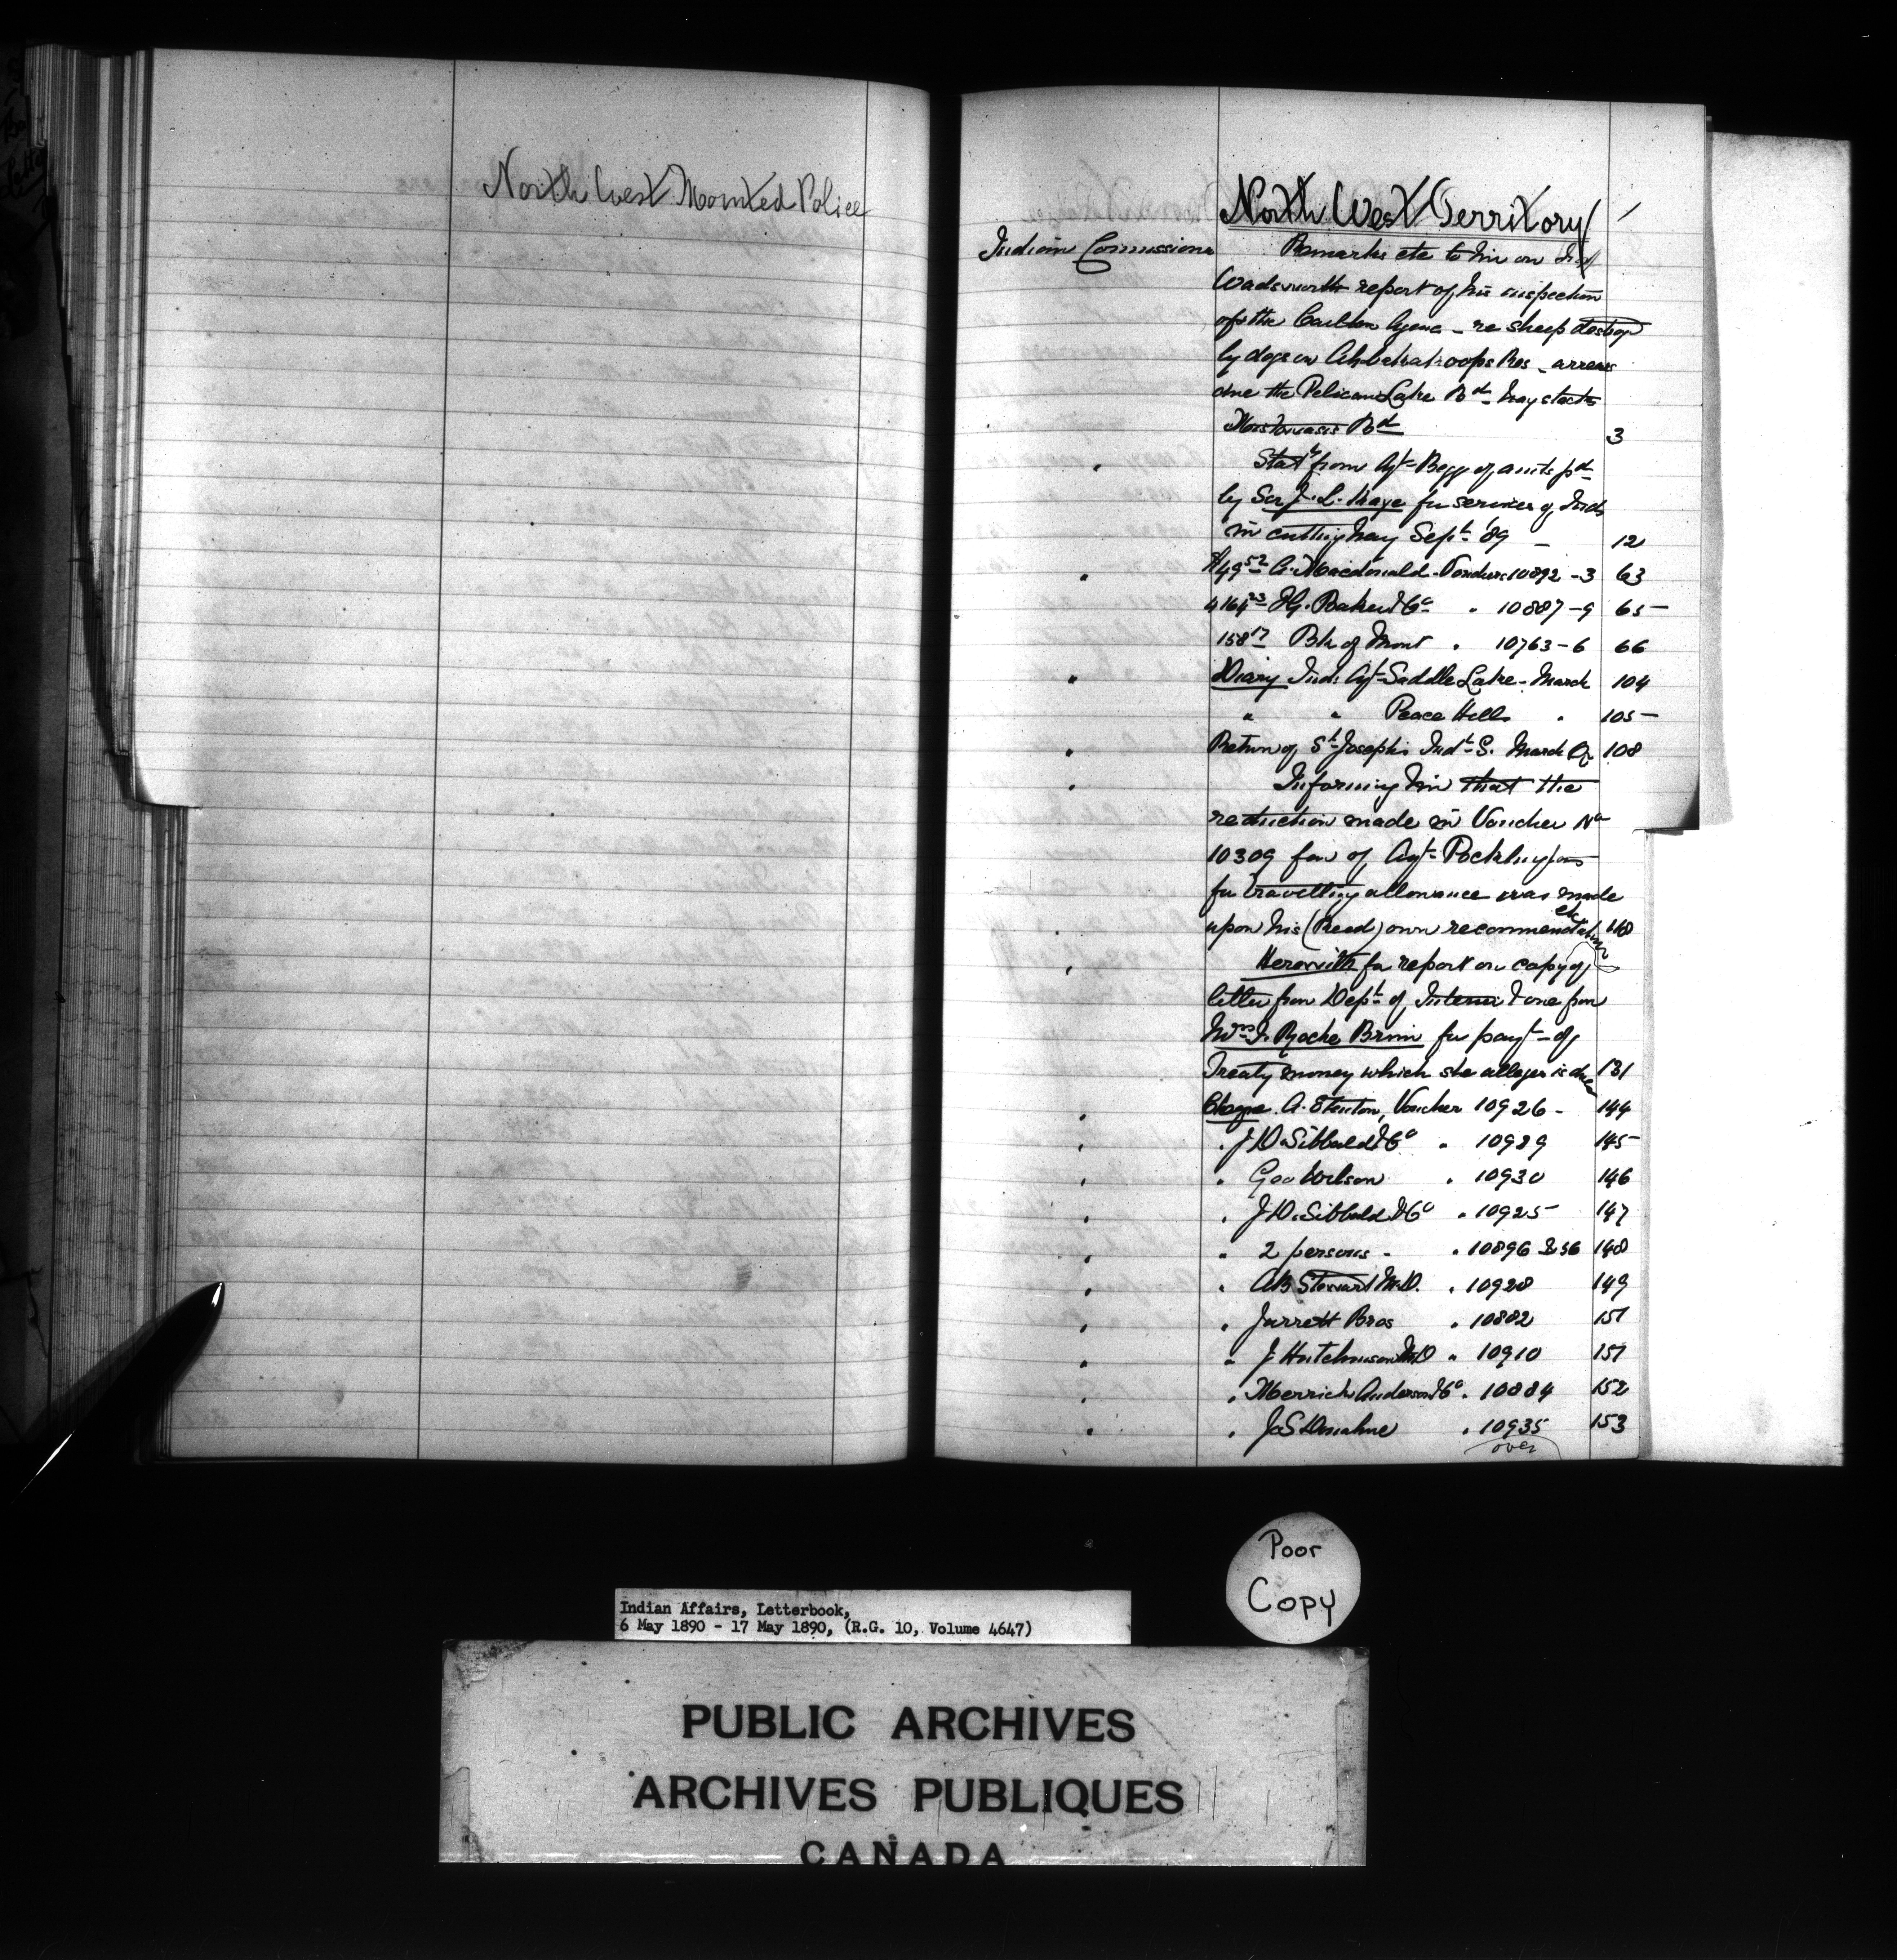 North West Mounted Police
North West Territory
Indian Comissioner Remarks etc to him on
Wadsworth report of his inspection
of the Carlton Agenc - re sheep destroy
by dogs on Ahtahkakoops Res - arrears
due the Pelican Lake Bd - hay stacks
Mistowasis Bd 3
" Statt from Agt Begg of amts pd
by Ser J. L. Kaye for services of Inds
in cutting hay Sept '89 - 12
" $49 52 A. Macdonald - Vouchers 10892-3 63
4164 23 I G. Baker & Co " 10887-9 65
158 17 Bk of Mont " 10763-6 66
" Diary Ind: Agt Saddle Lake - March 104
" " Peace Hills " 105
" Return of St Joseph's Indl S. March Qr 108
" Informing him that the
reduction made in Voucher No
10309 fav of Agt Pocklington
for travelling allowance was made
etc
" upon his (Reed) own recommendation 118
" Herewith for report on copy of
letter from Dept of Interior & one from
Mrs J. Roche Brim for payt of
Treaty money which she alleges is due 131
" Cheque A. Stenton, Voucher 10926 - 144
" " J D. Sibbald & Co " 10929 145
" " Geo Wilson " 10930 146
" " J D. Sibbald & Co " 10925 147
" " 2 persons - " 10896 & 36 148
" " AB Stewart M.D. " 10928 149
" " Jarrett Bros " 10882 151
" " J Hutchinson MD " 10910 151
" " Merrick Anderson & Co " 10884 152
" " J. S Donahue " 10935 153
over
Poor
Copy
Indian Affairs, Letterbook,
6 May 1890 - 17 May 1890, (R.G. 10, Volume 4647)
PUBLIC ARCHIVES
ARCHIVES PUBLIQUES
CANADA